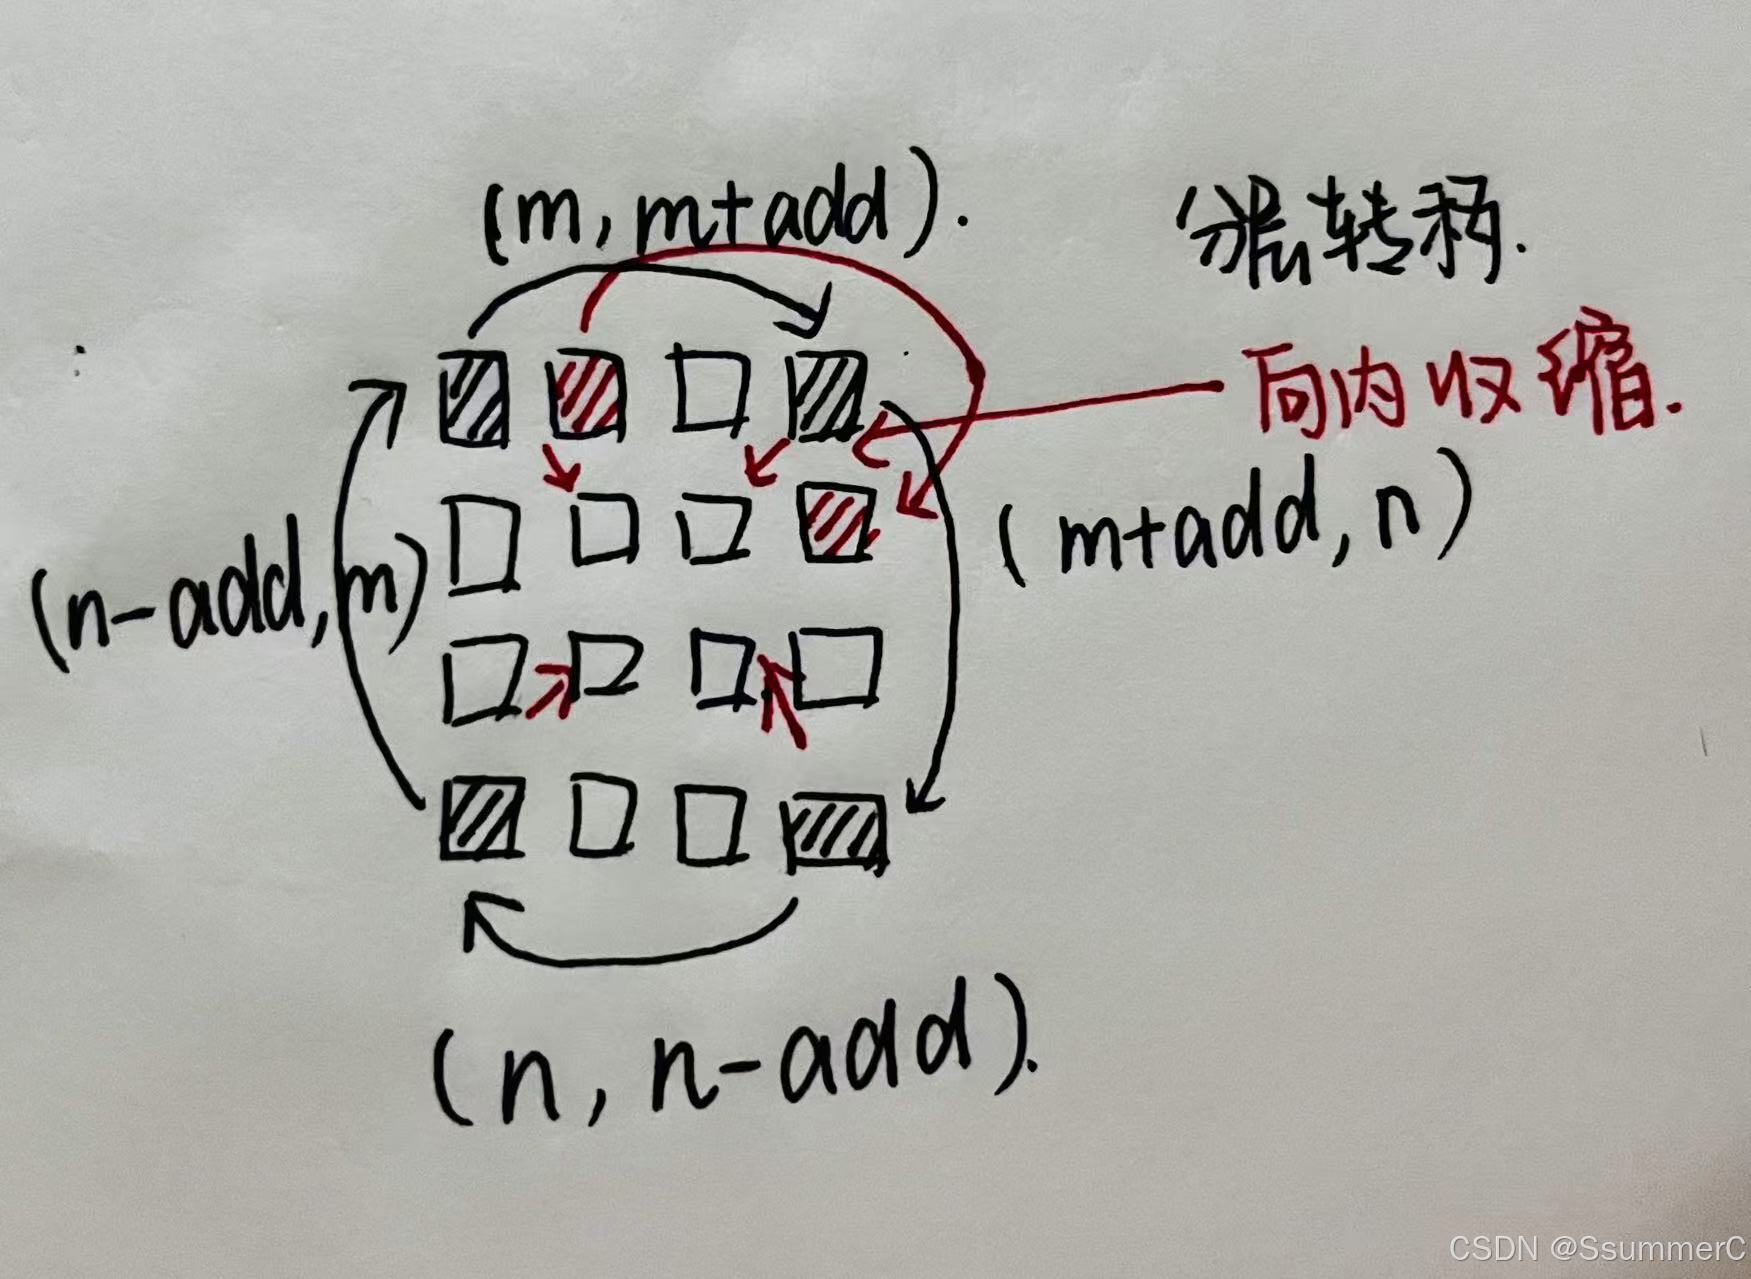 (m, m+add).
分层转移.
向内收缩.
(m+add, n)
(n-add, m)
(n, n-add).
CSDN @SsummerC